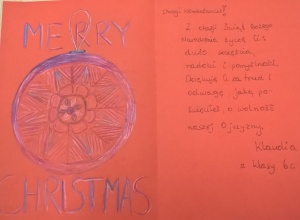 MERRY
CHRISTMAS
Drogi Kombatancie!
Z okazji Świąt Bożego
Narodzenia życzę Ci
dużo szczęścia,
radości i pomyślności.
Dziękuję Ci za trud i
odwagę jaką po-
święciłeś o wolność
naszej Ojczyzny
Klaudia
z klasy 6c